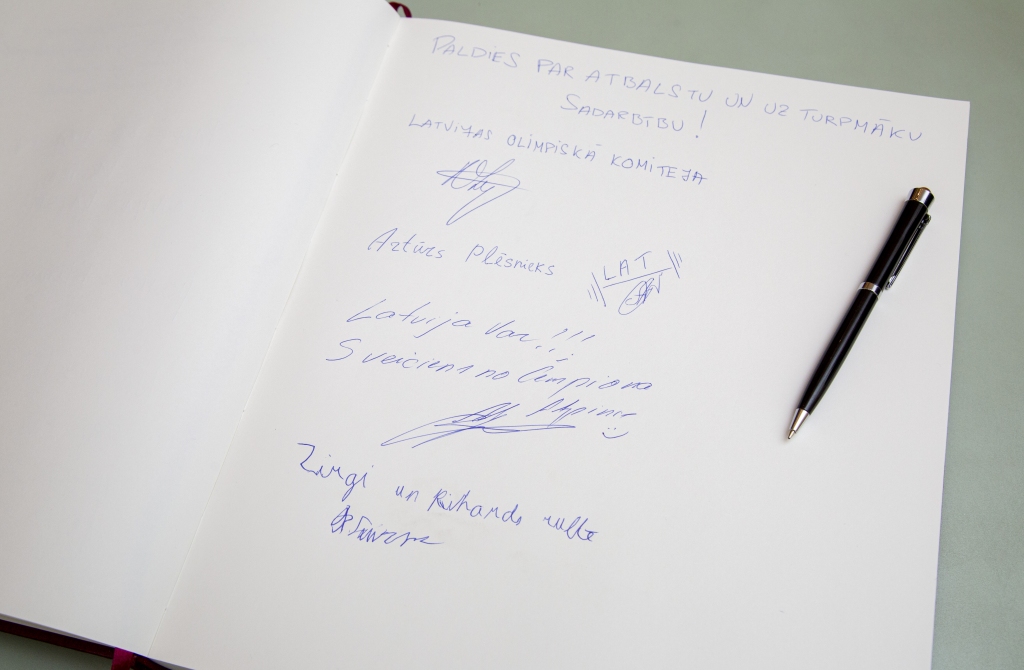 PALDIES PAR ATBALSTU UN UZ TURPMĀKU
SADARBĪBU!
LATVIJAS OLIMPISKĀ KOMITEJA
Artūrs Plēsnieks
LAT
Latvija Var!!!
Sveiciens no Čempiona
Zirgi un Richards rullē